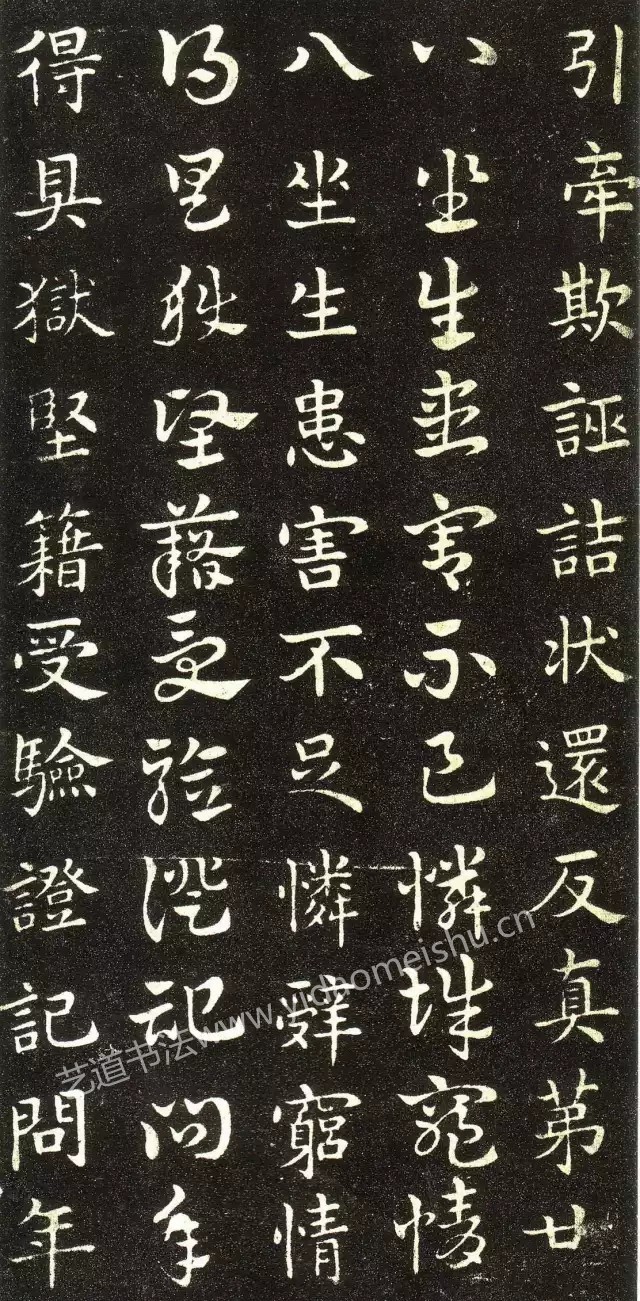 引牽欺誣詰状還反真第廿
八坐生患害不足憐辭窮情
八坐生患害不足憐辭窮情
得具獄堅籍受驗證記問年
得具獄堅籍受驗證記問年
艺道书法www.yidaomeishu.cn